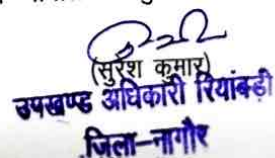 (सुरेश कुमार)
उपखण्ड अधिकारी रियांबड़ी
जिला-नागौर